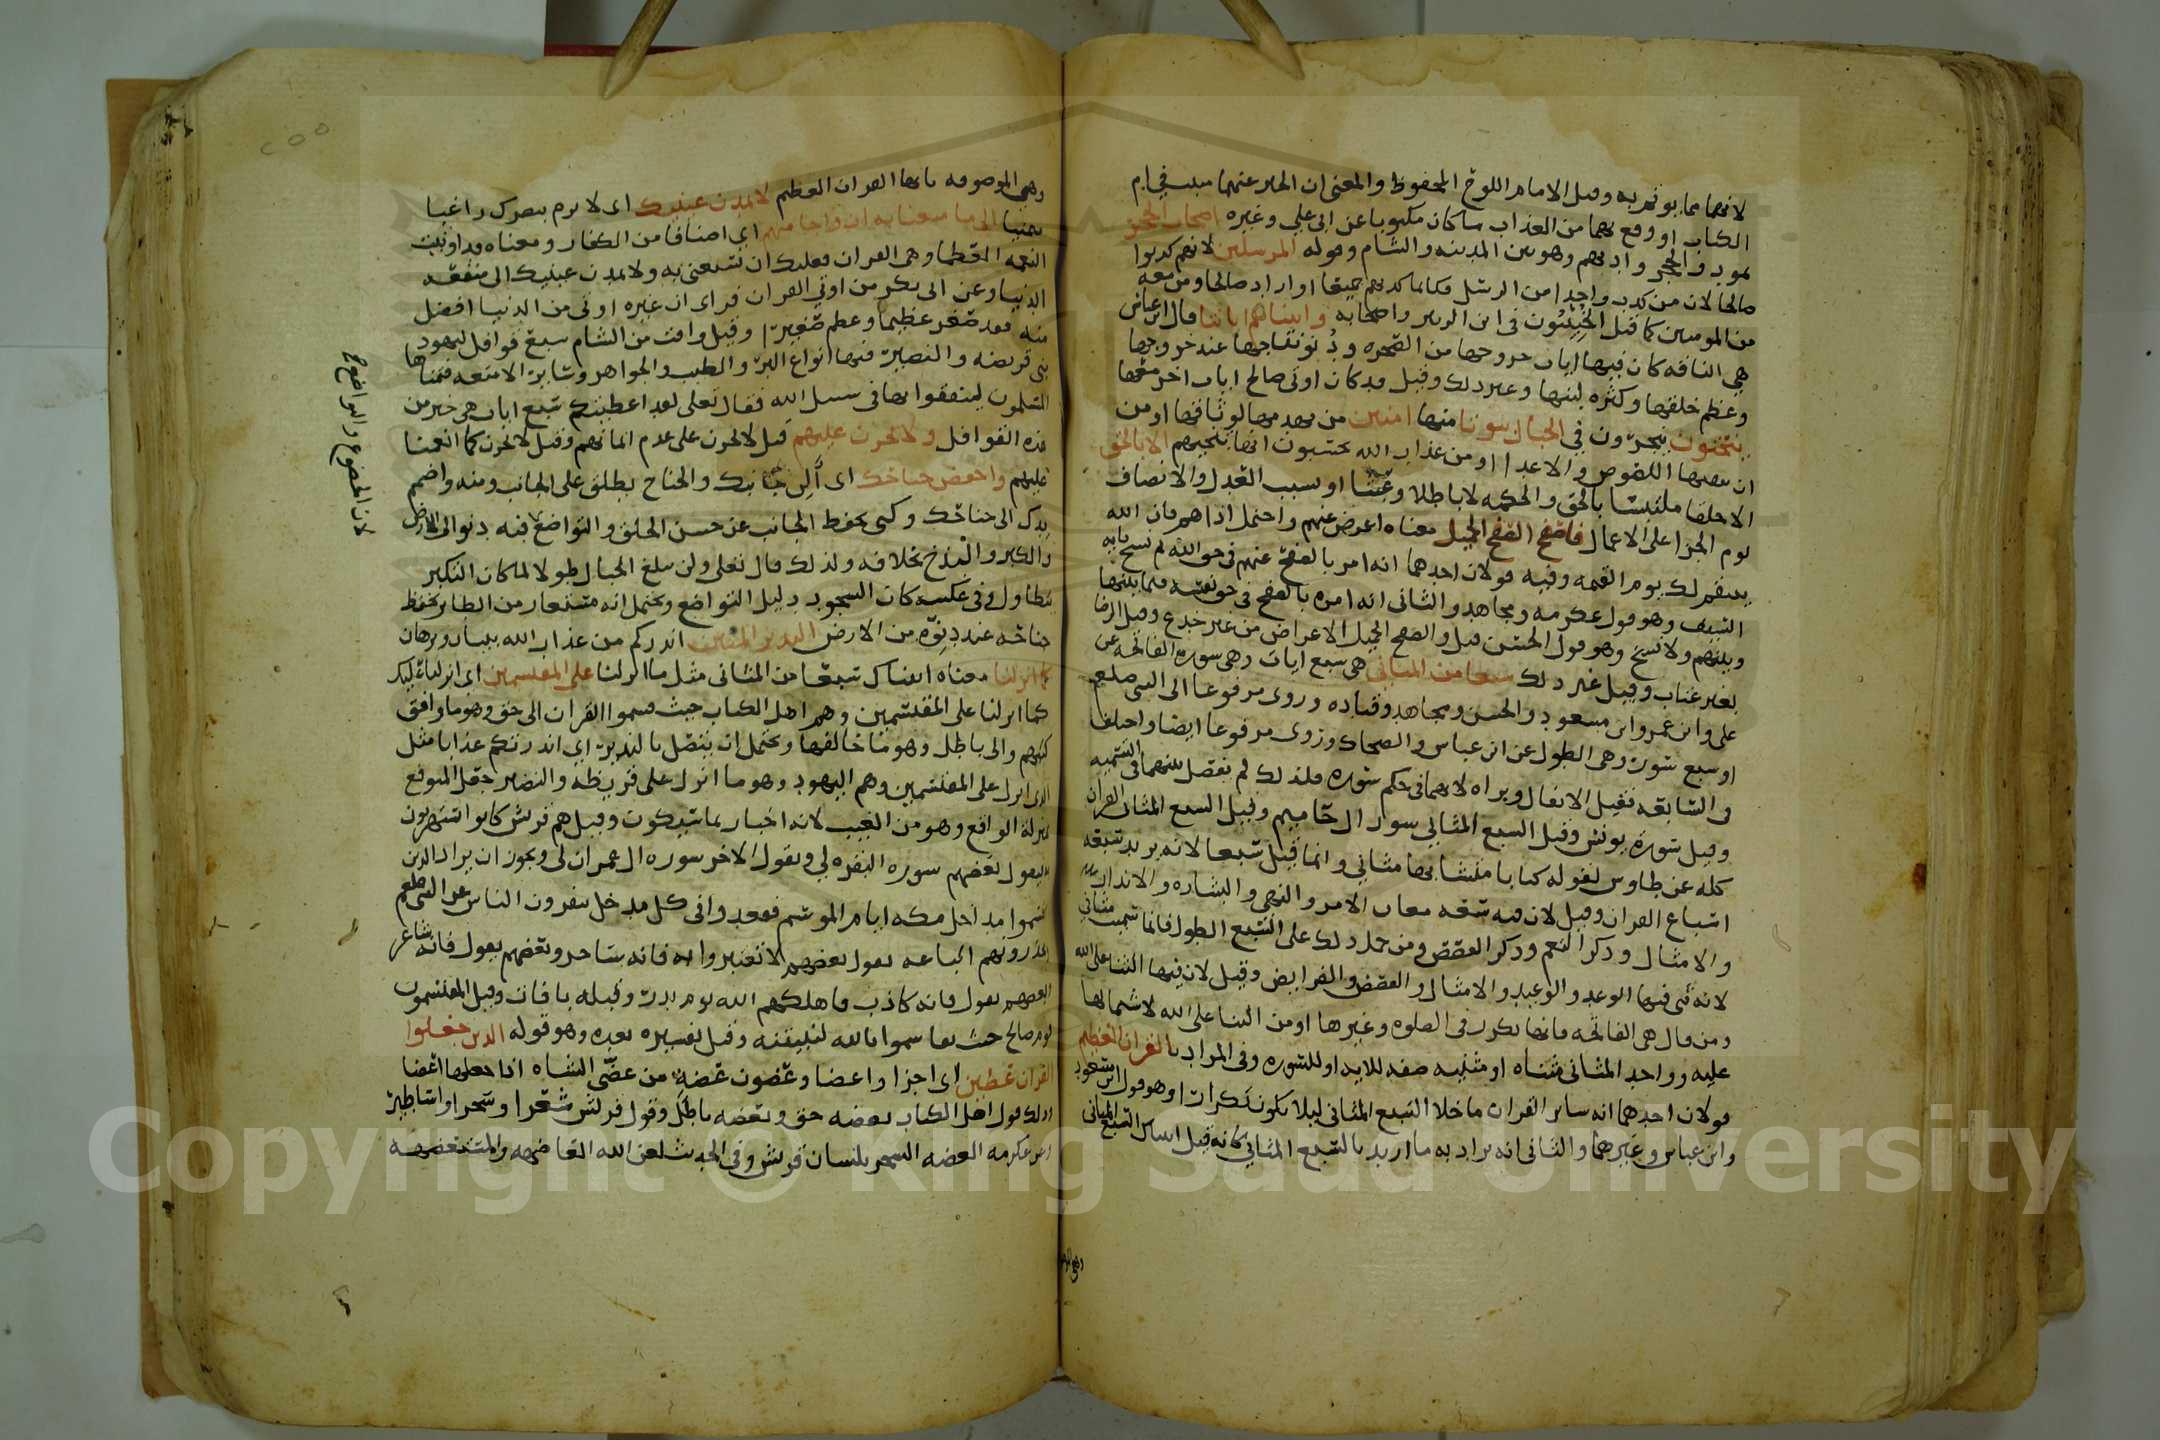 لانهما مما يوتم به وقيل الامام اللوح المحفوظ والمعنى ان الخبر عنهما مثبت في ام
الكتاب او وقع بهما من العذاب ما كان مكتوبا عن ابي علي وغيره اصحاب الحجر
ثمود والحجر واديهم وهو بين المدينه والشام وقوله المرسلين لانهم كذبوا
صالحا لان من كذب واحدا من الرسل فكانما كذبهم جميعا او اراد صالحا ومن معه
من المومنين كما قيل الخبيبون في ابن الزبير واصحابه واتيناهم اياتنا قال ابن عباس
هي الناقه كان فيها ايات خروجها من الصخره ودنو نتاجها عند خروجها
وعظم خلقها وكثره لبنها وغير ذلك وقيل قد كان اوتي صالح ايات اخر معها
ينحتون ينجرون في الجبال بيوتا منها امنين من يهدمها لوثاقتها او من
ان ينقبها اللصوص والاعدا او من عذاب الله يحسبون انها تنجيهم الا بالحق
الا خلقا ملتبسا بالحق والحكمه لا باطلا وعبثا او بسبب العدل والانصاف
يوم الجزا على الاعمال فاصفح الصفح الجميل معناه اعرض عنهم واحتمل اذاهم فان الله
ينتقم لك يوم القيمه وفيه قولان احدهما انه امر بالصفح عنهم في حق الله ثم نسخ بايه
السيف وهو قول عكرمه ومجاهد والثاني انه امره بالصفح في حق نفسه فيما بينه
وبينهم ولا نسخ وهو قول الحسن قيل والصفح الجميل الاعراض من غير جزع وقيل الرضا
بغير عتاب وقيل غير ذلك سبعا من المثاني هي سبع ايات وهي سوره الفاتحه عن
علي وابن عمر وابن مسعود والحسن ومجاهد وقتاده وروي مرفوعا الى النبي صلعم
او سبع سور وهي الطول عن ابن عباس والضحاك وروي مرفوعا ايضا واختلف
في السابعه فقيل الانفال وبراه لانهما في حكم سوره فلذلك لم يفصل بينهما في التسميه
وقيل سورة يونس وقيل السبع المثاني سور ال حاميم وقيل السبع المثاني القران
كله عن طاوس لقوله كتابا متشابها مثاني وانما قيل سبعا لانه يريد سبعه
اسباع القران وقيل لان فيه سبعه معان الامر والنهي والبشاره والانذار
والامثال وذكر النعم وذكر القصص ومن حمل ذلك على السبع الطول فانما سميت مثاني
لانه ثنى فيها الوعد والوعيد والامثال والقصص والفرايض وقيل لان فيها الثنا على الله
ومن قال هي الفاتحه فانها تكرر في الصلوه وغيرها او من الثنا على الله لاشتمالها
عليه وواحد المثاني مثناه او مثنيه صفه للايه او للسوره وفي المراد بالقران العظيم
قولان احدهما انه ساير القران ما خلا السبع المثاني ليلا يكون تكرارا وهو قول ابن مسعود
وابن عباس وغيرهما والثاني انه يراد به ما اريد بالسبع المثاني كانه قيل اتيناك السبع المثاني
وهي الموصوفه بانها القران العظيم لا تمدن عينيك اي لا ترم ببصرك راغبا
متمنيا الى ما متعنا به ازواجا منهم اي اصنافا من الكفار ومعناه قد اوتيت
النعمه العظما وهي القران فعليك ان تستغني به ولا تمدن عينيك الى متعه
الدنيا وعن ابي بكر من اوتي القران فراى ان غيره اوتي من الدنيا افضل
منه فقد صغر عظيما وعظم صغيرا وقيل وافت من الشام سبع قوافل ليهود
بني قريضه والنضير فيها انواع البز والطيب والجواهر وساير الامتعه فتمناها
المسلمون لينفقوا بها في سبيل الله فقال تعالى لقد اعطيتكم سبع ايات هي خير من
هذه القوافل ولا تحزن عليهم قيل لا تحزن على عدم ايمانهم وقيل لا تحزن كما انعمنا
عليهم واخفض جناحك اي الن جانبك والجناح يطلق على الجانب ومنه واضمم
يدك الى جناحك وكنى بخفظ الجانب عن حسن الخلق والتواضع لان الخضوع والتواضع فيه دنو الى الارض
والكبر والبذخ بخلافه ولذلك قال تعالى ولن تبلغ الجبال طولا لما كان التكبر
تطاول وفي عكسه كان السجود دليل التواضع ويحتمل انه مستعار من الطاير يخفظ
جناحه عند دنوه من الارض النذير المبين انذركم من عذاب الله ببيان وبرهان
كما انزلنا معناه اتيناك سبعا من المثاني مثل ما انزلنا على المقتسمين اي انزلنا عليك
كما انزلنا على المقتسمين وهم اهل الكتاب حيث قسموا القران الى حق وهو ما وافق
كتبهم والى باطل وهو ما خالفها ويحتمل ان يتصل بالنذير اي انذرتكم عذابا مثل
الذي انزل على المقتسمين وهم اليهود وهو ما انزل على قريظه والنضير جعل المتوقع
بمنزلة الواقع وهو من الغيب لانه اخبار بما سيكون وقيل هم قريش كانوا يستهزون
فيقول بعضهم سوره البقره لي ويقول الاخر سوره ال عمران لي ويجوز ان يراد الذين
قسموا مداخل مكه ايام الموسم فقعدوا في كل مدخل ينفرون الناس عن النبي صلعم
يقول بعضهم لا تغتروا به فانه ساحر وبعضهم يقول فانه شاعر
وبعضهم يقول فانه كاذب فاهلكهم الله يوم بدر وقبله بافات وقيل المقتسمون
قوم صالح حيث تقاسموا بالله لنبيتنه وقيل تفسيره بعده وهو قوله الذين جعلوا
القران عظين اي اجزا واعضا وعضون عضه من عضى الشاه اذا جعلها اعضا
وذلك قول اهل الكتاب بعضه حق وبعضه باطل وقول قريش شعرا وسحرا واساطير
وعن عكرمه العضه السحر بلسان قريش وفي الحديث لعن الله العاضهه والمستعضهه